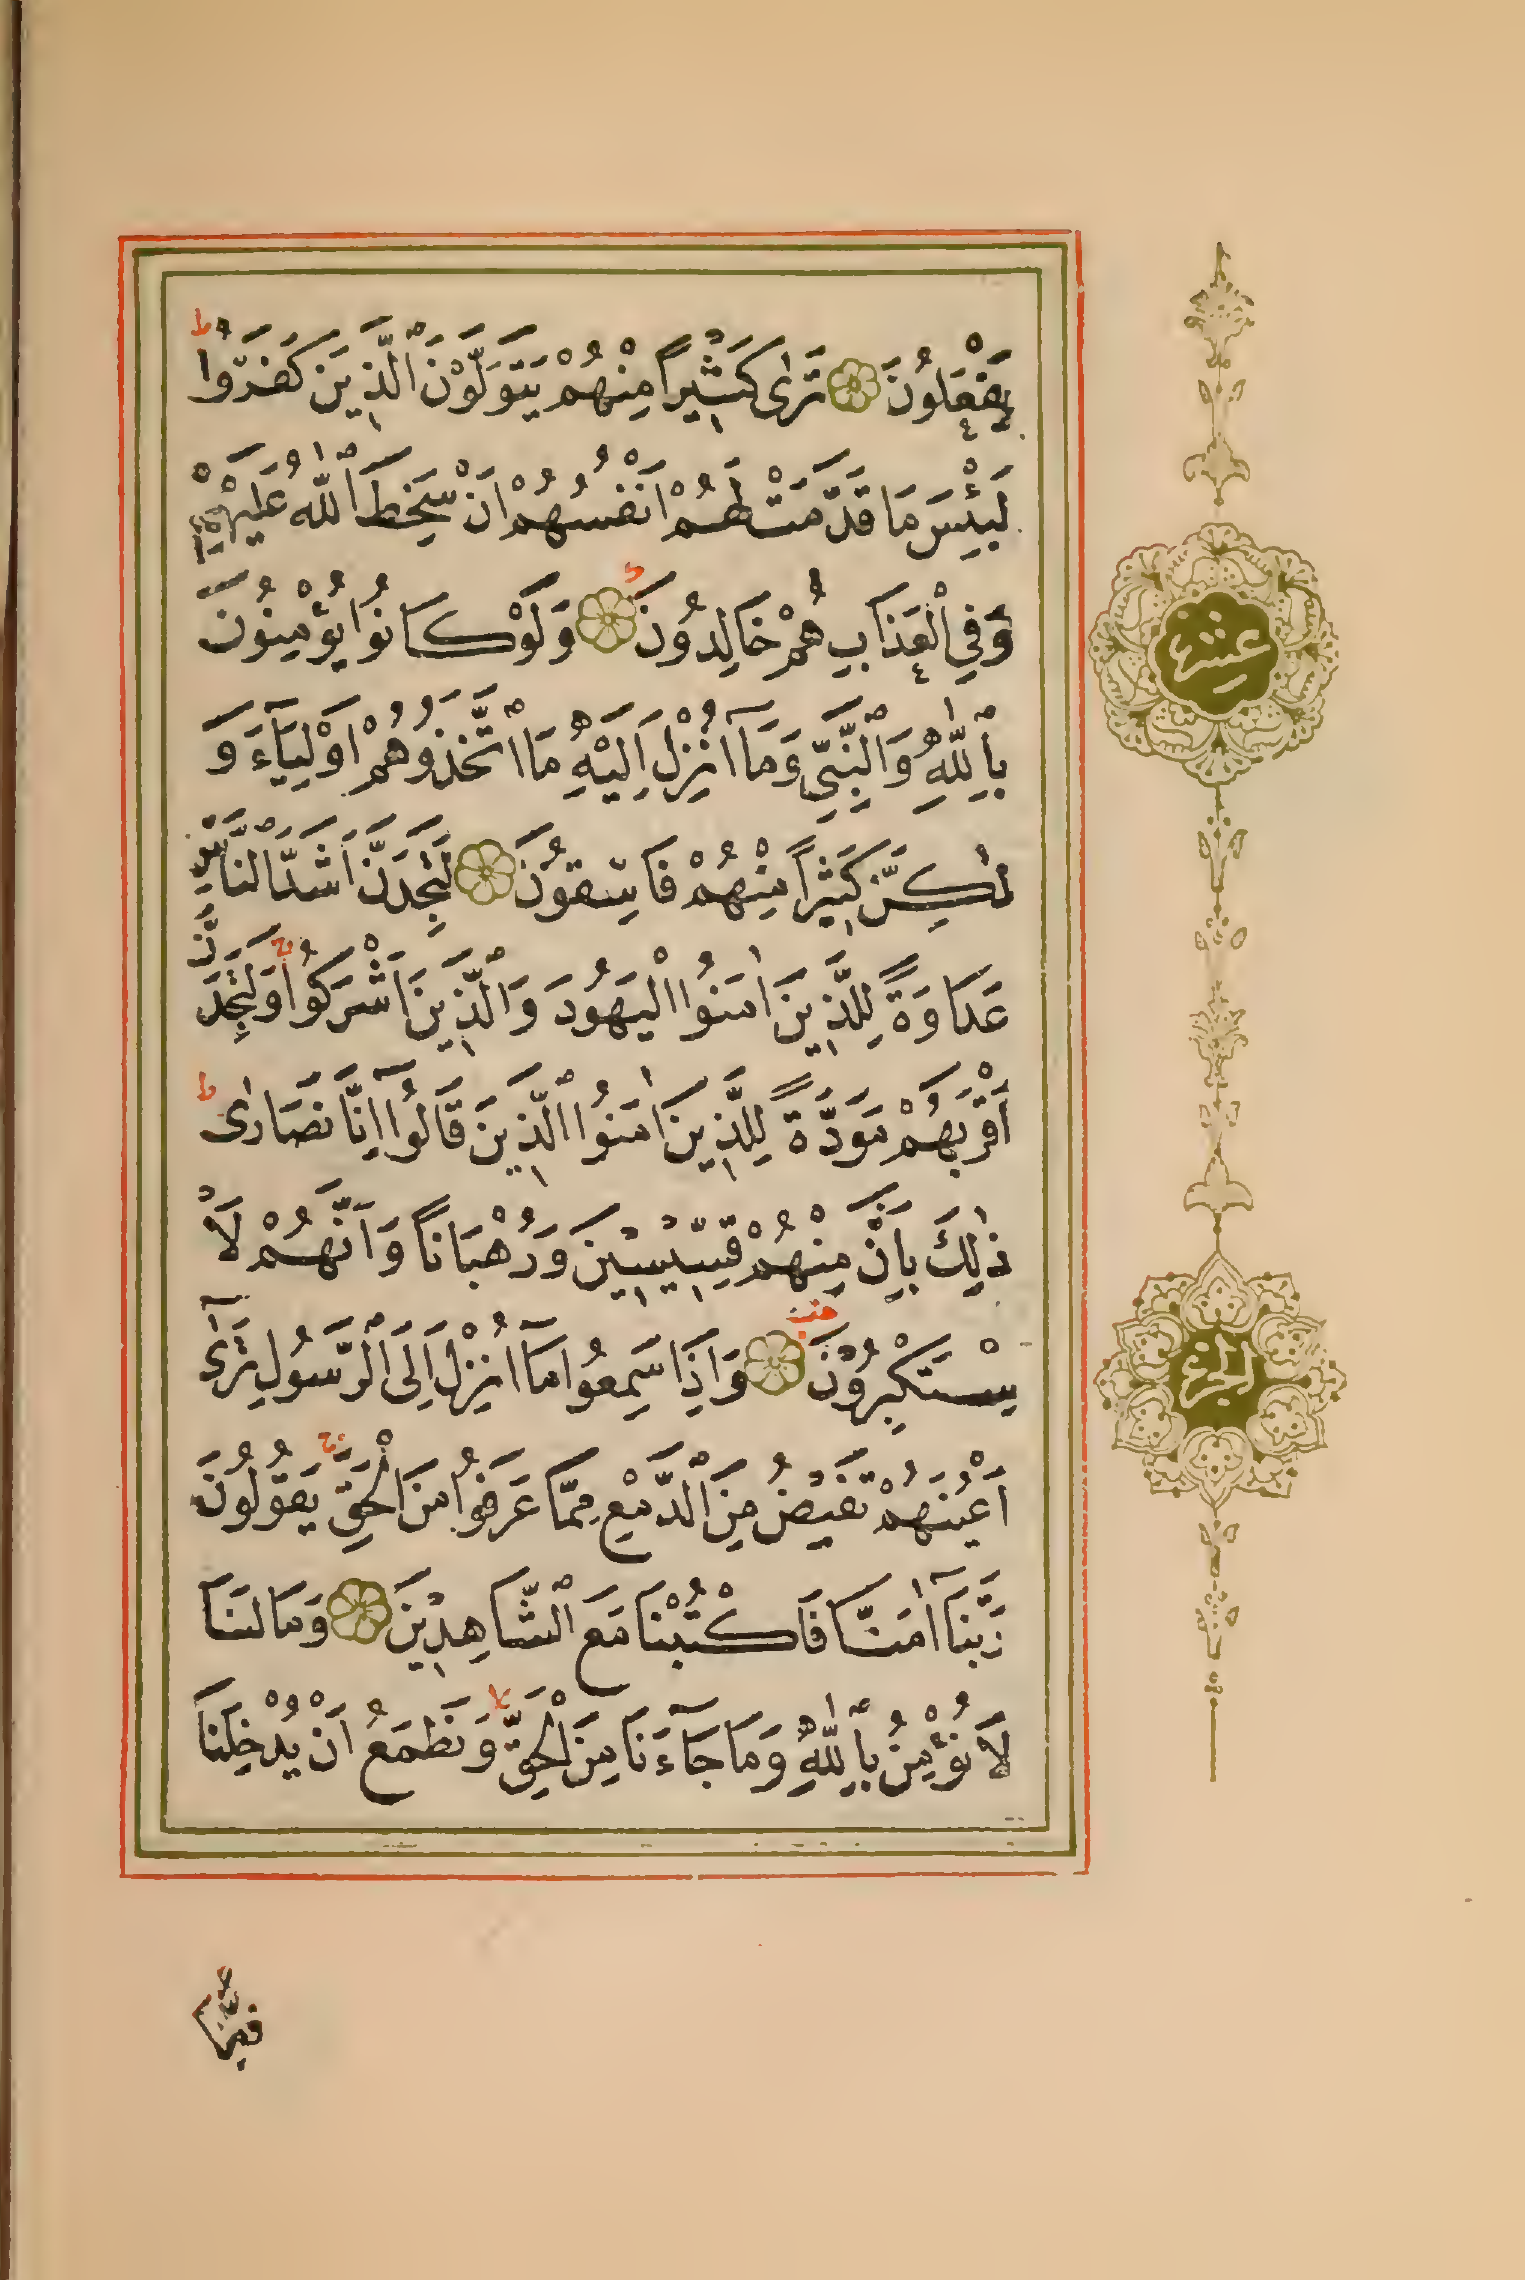 يَفْعَلُونَ تَرٰى كَثٖيراً مِنْهُمْ يَتَوَلَّوْنَ الَّذٖينَ كَفَرُوا ط
لَبِئْسَ مَا قَدَّمَتْ لَهُمْ اَنْفُسُهُمْ اَنْ سَخِطَ اللّٰهُ عَلَيْهِمْ
وَفِي الْعَذَابِ هُمْ خَالِدُونَ وَلَوْ كَانُوا يُؤْمِنُونَ
بِاللّٰهِ وَالنَّبِيِّ وَمَآ اُنْزِلَ اِلَيْهِ مَا اتَّخَذُوهُمْ اَوْلِيَآءَ وَ
لٰكِنَّ كَثٖيراً مِنْهُمْ فَاسِقُونَ لَتَجِدَنَّ اَشَدَّ النَّاسِ
عَدَاوَةً لِلَّذٖينَ اٰمَنُوا الْيَهُودَ وَالَّذٖينَ اَشْرَكُوا ج وَلَتَجِدَنَّ
اَقْرَبَهُمْ مَوَدَّةً لِلَّذٖينَ اٰمَنُوا الَّذٖينَ قَالُوٓا اِنَّا نَصَارٰى ط
ذٰلِكَ بِاَنَّ مِنْهُمْ قِسّٖيسٖينَ وَرُهْبَاناً وَاَنَّهُمْ لَا
يَسْتَكْبِرُونَ وَاِذَا سَمِعُوا مَآ اُنْزِلَ اِلَى الرَّسُولِ تَرٰٓى
اَعْيُنَهُمْ تَفٖيضُ مِنَ الدَّمْعِ مِمَّا عَرَفُوا مِنَ الْحَقِّ ج يَقُولُونَ
رَبَّنَآ اٰمَنَّا فَاكْتُبْنَا مَعَ الشَّاهِدٖينَ وَمَا لَنَا
لَا نُؤْمِنُ بِاللّٰهِ وَمَا جَآءَنَا مِنَ الْحَقِّ لا وَنَطْمَعُ اَنْ يُدْخِلَنَا
عشر